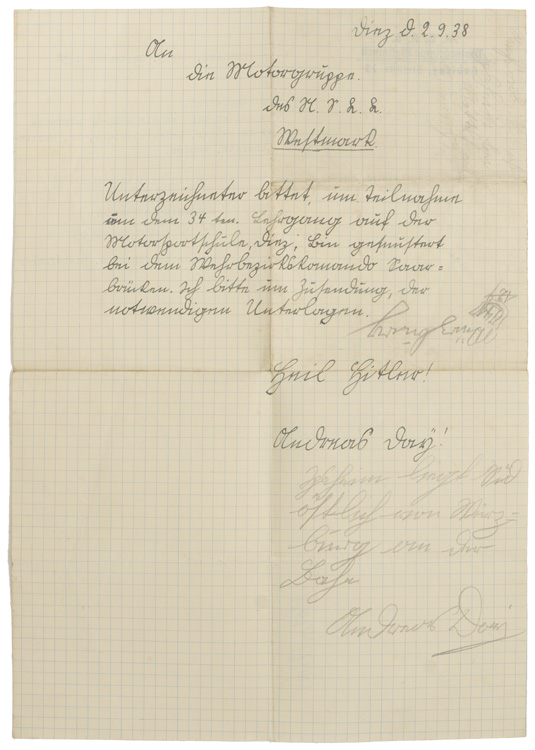 Diez d. 2.9.38
An
die Motorgruppe.
des N. S. K. K.
Westmark.
Unterzeichneter bittet, um Teilnahme
an dem 34 ten. Lehrgang auf der
Motorsportschule, Diez, bin gemustert
bei dem Wehrbezirkskomando Saar=
brüken. Ich bitte um Zusendung, der
notwendigen Unterlagen.
Heil Hitler!
Andreas Day!
liegt Süd
östlich von Würz=
burg an der
Andreas